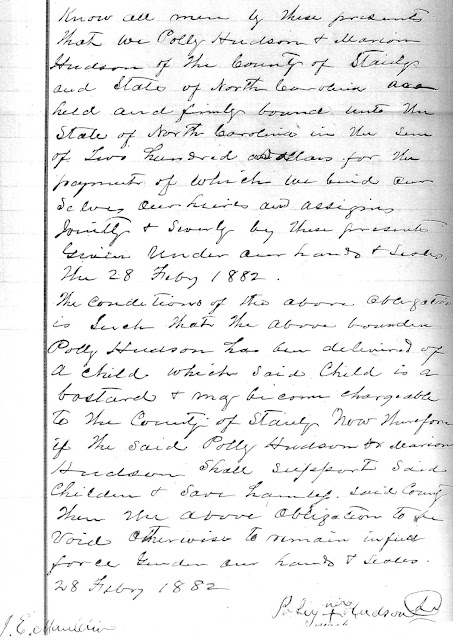 Know all men by these presents
that we Polly Hudson & Marion
Hudson of the County of Stanly
and State of North Carolina are
held and firmly bound unto the
State of North Carolina in the sum
of Two hundred dollars for the
payment of which we bind our
Selves our heirs and assigns
Jointly & Sevrly by these presents
Given under our hands & Seals.
the 28 Feby 1882.
The conditions of the above obligation
is Such that the above bounden
Polly Hudson has been delivered of
a child which said Child is a
bastard & may becom chargeable
to the County of Stanly Now therefore
if the said Polly Hudson & Marion
Hudson Shall support said
Children & Save harmles. said County
then the above obligation to be
void otherwise to remain in full
force under our hands & Seales.
28 Feby 1882
her
Polly + Hudson
mark
J. E.